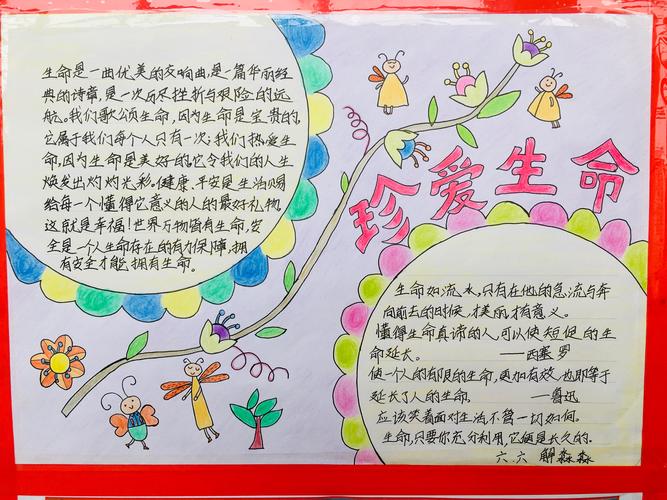 生命是一曲优美的交响曲,是一篇华丽经
典的诗章,是一次历尽挫折与艰险的远
航。我们歌颂生命,因为生命是宝贵的,
它属于我们每个人只有一次;我们热爱生
命,因为生命是美好的,它令我们的人生
焕发出灼灼光彩。健康、平安是生活赐
给每一个懂得它意义的人的最好礼物,
这就是幸福!世界万物皆有生命,安
全是一个人生命存在的有力保障,拥
有安全才能拥有生命。
珍爱生命
生命如流水,只有在他的急流与奔
向前去的时候,才美丽,才有意义。
懂得生命真谛的人,可以使短促的生
命延长。 ——西塞罗
使一个人的有限的生命,更加有效,也即等于
延长了人的生命。 ——鲁迅
应该笑着面对生活,不管一切如何。
生命,只要你充分利用,它便是长久的。
六.六 解淼淼